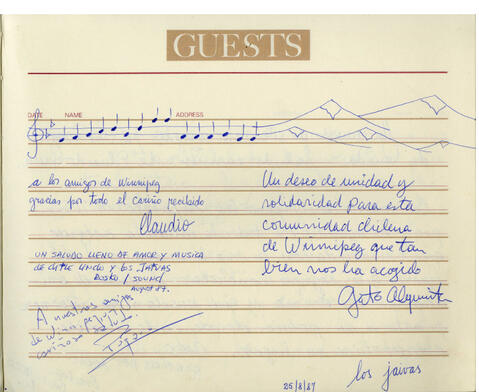 GUESTS
DATE NAME ADDRESS
a los amigos de Winnipeg
gracias por todo el cariño recibido
Claudio
UN SALUDO LLENO DE AMOR Y MUSICA
DE CHILE LINDO Y LOS JAIVAS
/ SOUND
August 87.
A nuestros amigos
de Winnipeg
cariñoso
Un deseo de unidad y
solidaridad para esta
comunidad chilena
de Winnipeg que tan
bien nos ha acogido
Gato Alquinta
los jaivas
25/8/87